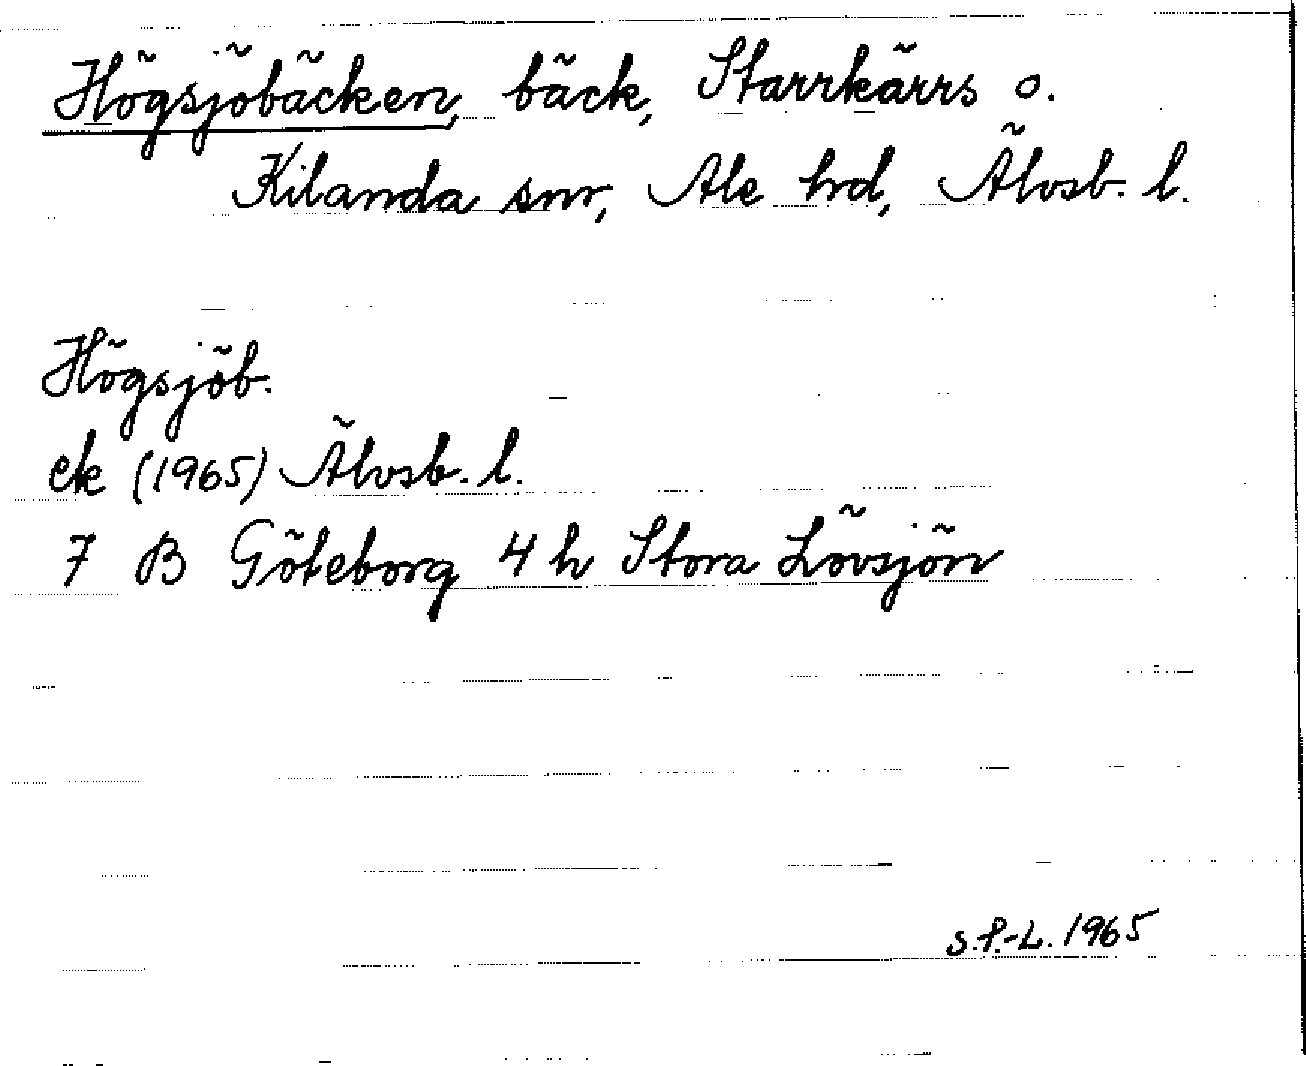 Högsjöbäcken, bäck, Starrkärrs o.
Kilanda snr, Ale hrd, Älvsb. l.
Högsjöb.
ek (1965) Älvsb. l.
7 B Göteborg 4 h Stora Lövsjön
S.P.-L. 1965